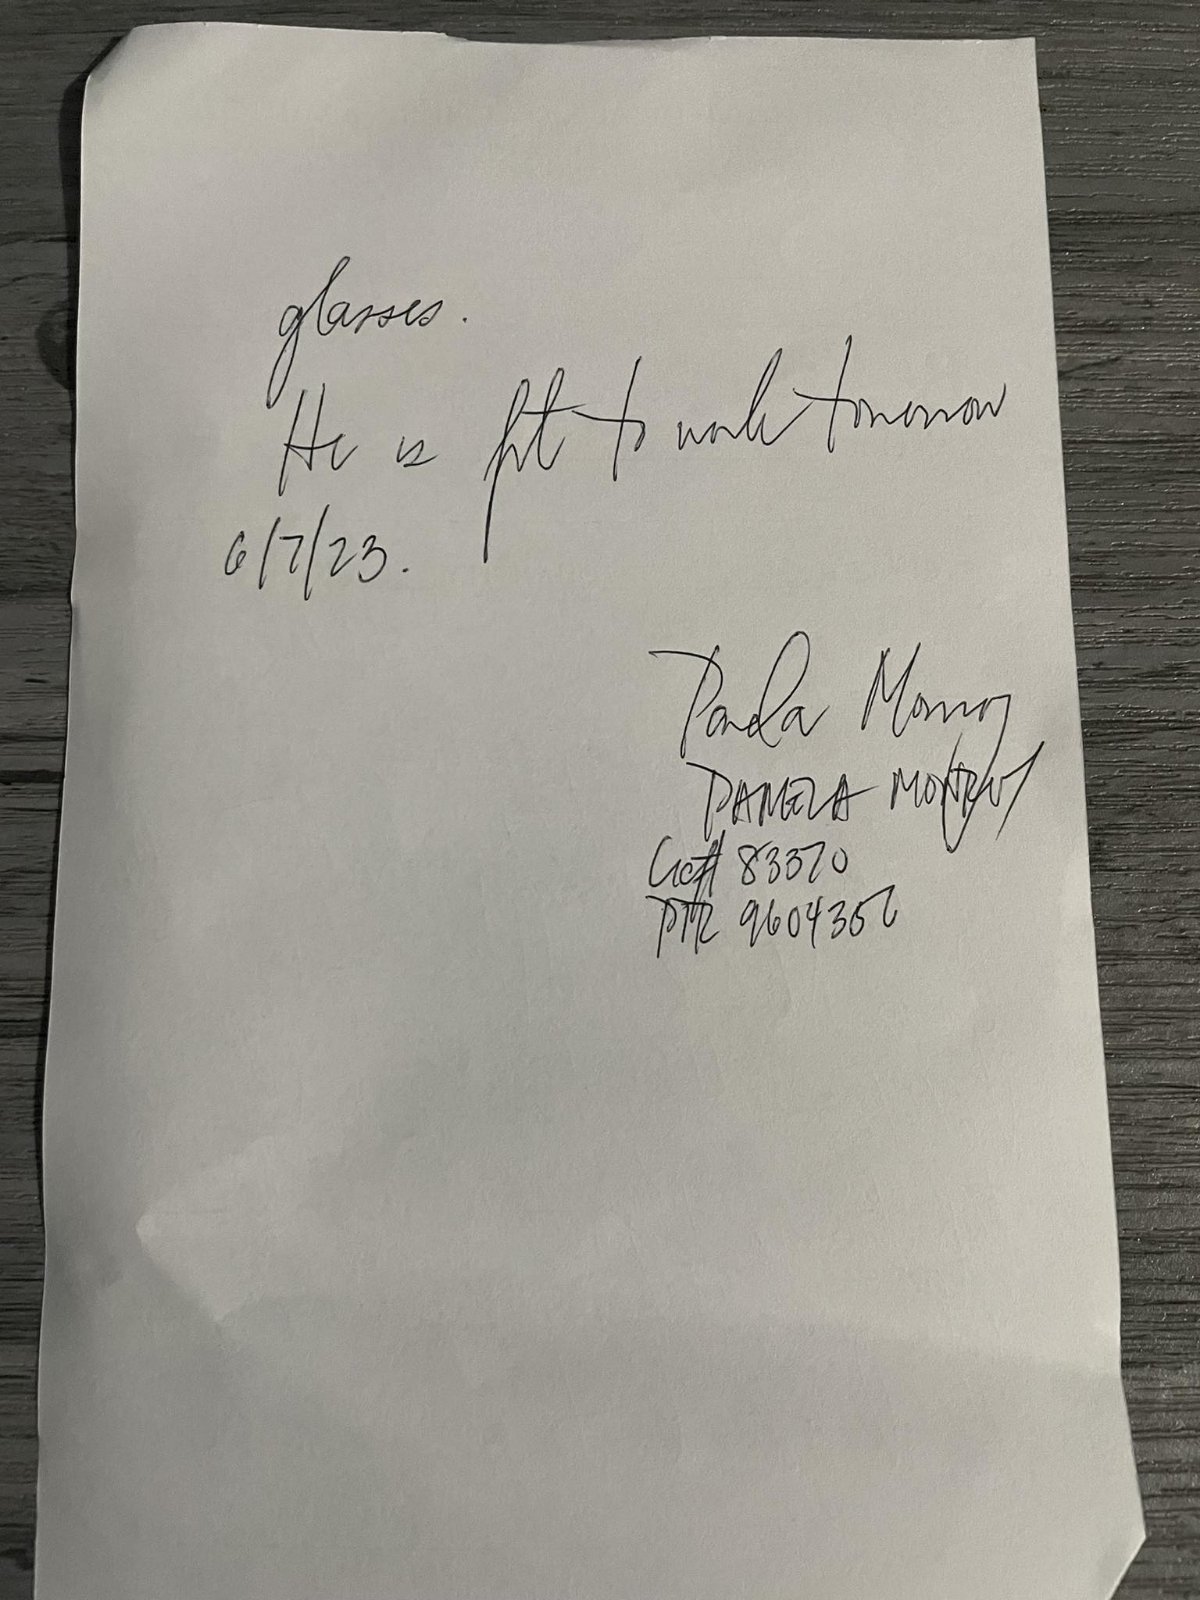 glasses.
He is fit to work tomorrow
6/7/23.
Pamela Monroy
PAMELA MONROY
Lic# 83370
PTR 9604356